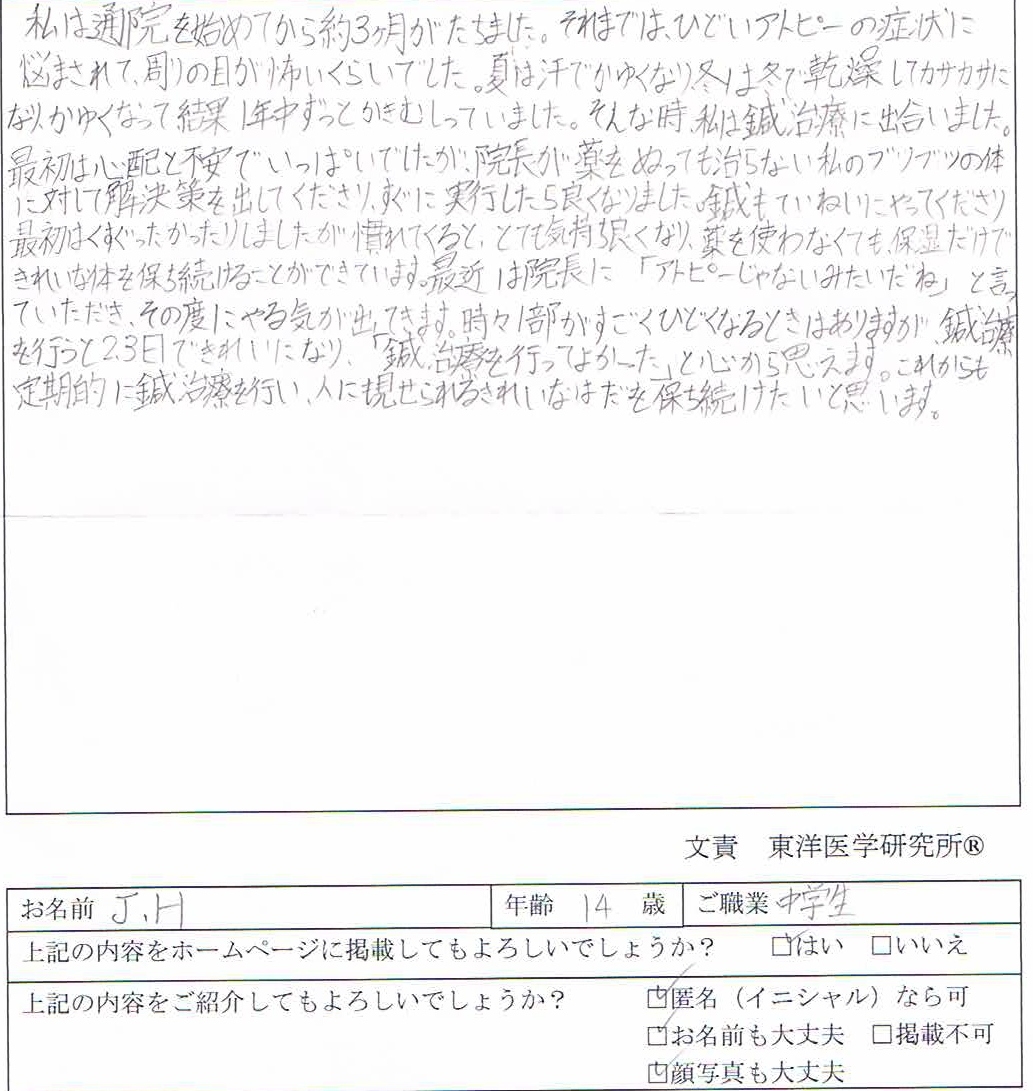 私は通院を始めてから約3ヶ月がたちました。それまでは、ひどいアトピーの症状に
悩まされて、周りの目が怖いくらいでした。夏は汗でかゆくなり、冬は冬で乾燥してカサカサに
なり、かゆくなって結果1年中ずっとかきむしっていました。そんな時、私は鍼治療に出合いました。
最初は心配と不安でいっぱいでしたが、院長が薬をぬっても治らない私のブツブツの体
に対して解決策を出してくださり、すぐに実行したら良くなりました。鍼もていねいにやってくださり
最初はくすぐったかったりしましたが慣れてくると、とても気持ち良くなり、薬を使わなくても、保湿だけで
きれいな体を保ち続けることができています。最近は院長に「アトピーじゃないみたいだね」と言っ
ていただき、その度にやる気が出てきます。時々1部がすごくひどくなるときはありますが、鍼治療
を行うと2.3日できれいになり、「鍼治療を行ってよかった」と心から思えます。これからも
定期的に鍼治療を行い、人に見せられるきれいなはだを保ち続けたいと思います。
文責 東洋医学研究所®
お名前 J.H 年齢 14 歳 ご職業 中学生
上記の内容をホームページに掲載してもよろしいでしょうか？ ☑はい □いいえ
上記の内容をご紹介してもよろしいでしょうか？ ☑匿名（イニシャル）なら可
☑お名前も大丈夫 □掲載不可
☑顔写真も大丈夫